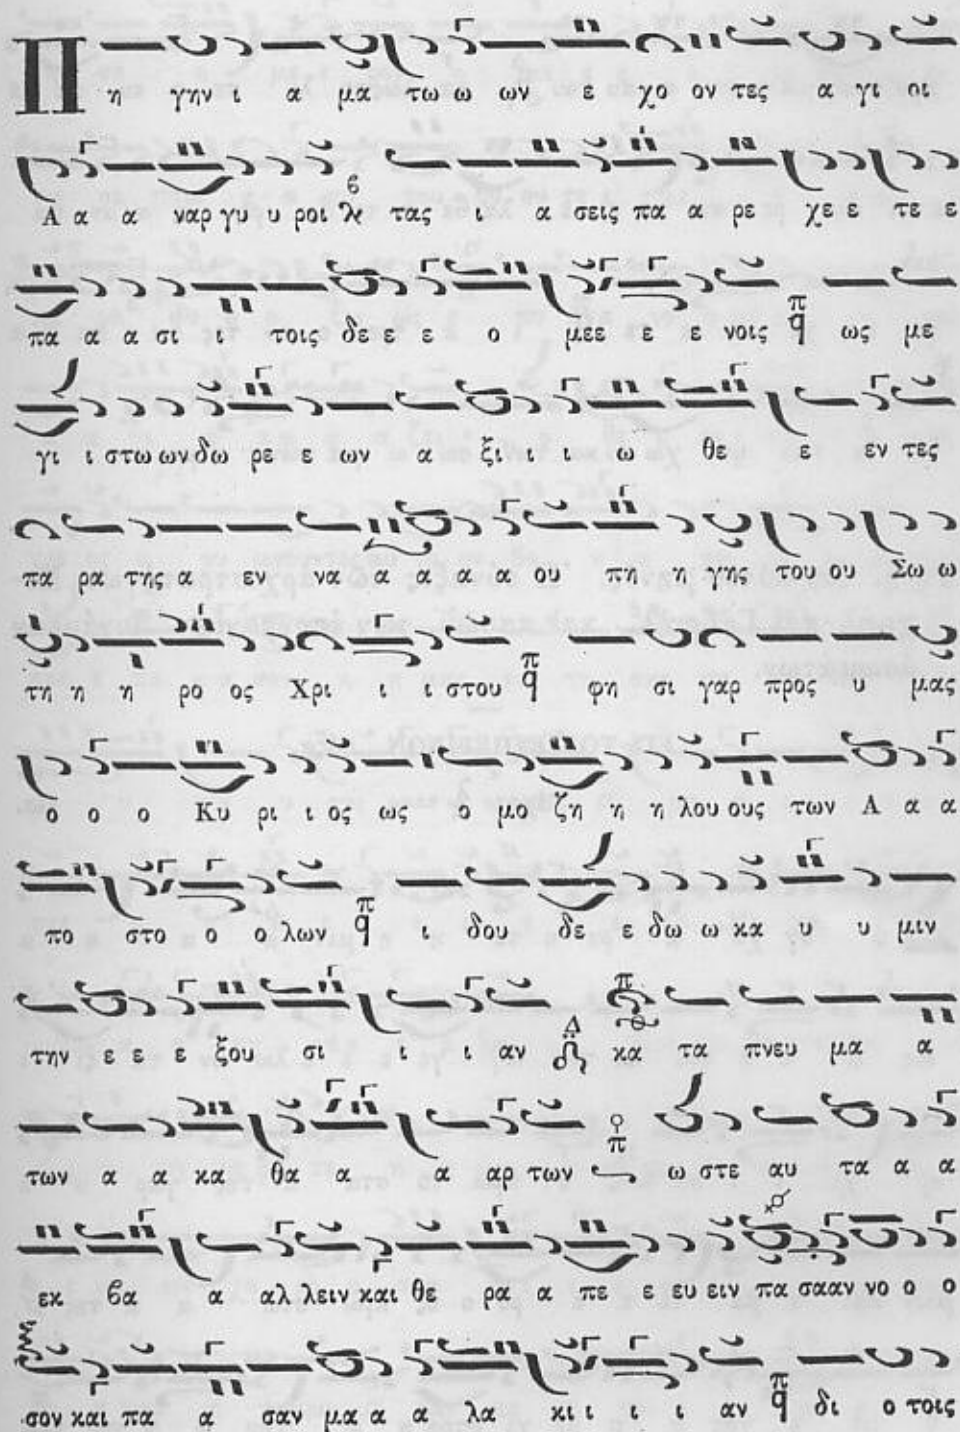 Π η γην ι α μα τω ω ων ε χο ον τες α γι οι
Α α α ναρ γυ υ ροι τας ι α σεις πα α ρε χε ε τε ε
πα α α σι ι τοις δε ε ε ο με ε ε ε νοις π ως με
γι ι στω ων δω ρε ε ων α ξι ι ι ω θε ε εν τες
πα ρα της α εν να α α α α ου πη η γης του ου Σω ω
τη η η ρο ος Χρι ι ι στου π φη σι γαρ προς υ μας
ο ο ο Κυ ρι ι ος ως ο μο ζη η η λου ους των Α α α
πο στο ο ο λων π ι δου δε ε δω ω κα υ υ μιν
την ε ε ε ξου σι ι ι αν Δ κα τα πνευ μα α
των α α κα θα α α αρ των π ω στε αυ τα α α
εκ βα α αλ λειν και θε ρα α πε ε ευ ειν πα σα αν νο ο ο
σον και πα α σαν μα α α λα κι ι ι ι αν π δι ο τοις